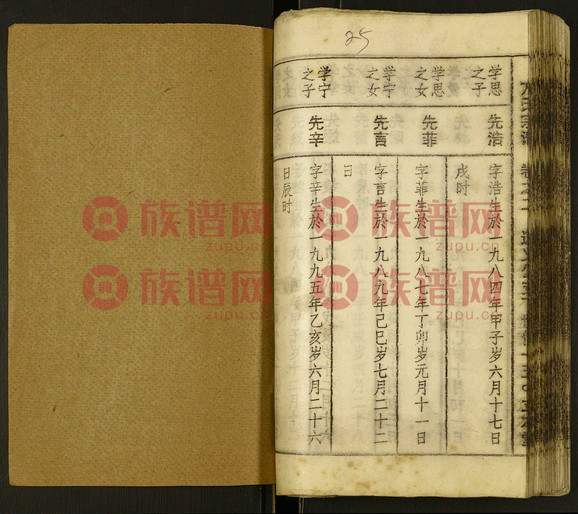 25
学思之子
先浩
字浩生於一九八四年甲子岁六月十七日
戌时
学思之女
先菲
字菲生於一九八七年丁卯岁元月十一日
学宁之女
先言
字言生於一九八九年己巳岁七月二十二
日
学宁之子
先辛
字辛生於一九九五年乙亥岁六月二十六
日辰时
族谱网 族谱网
zupu.cn zupu.cn
族谱网 族谱网
zupu.cn zupu.cn